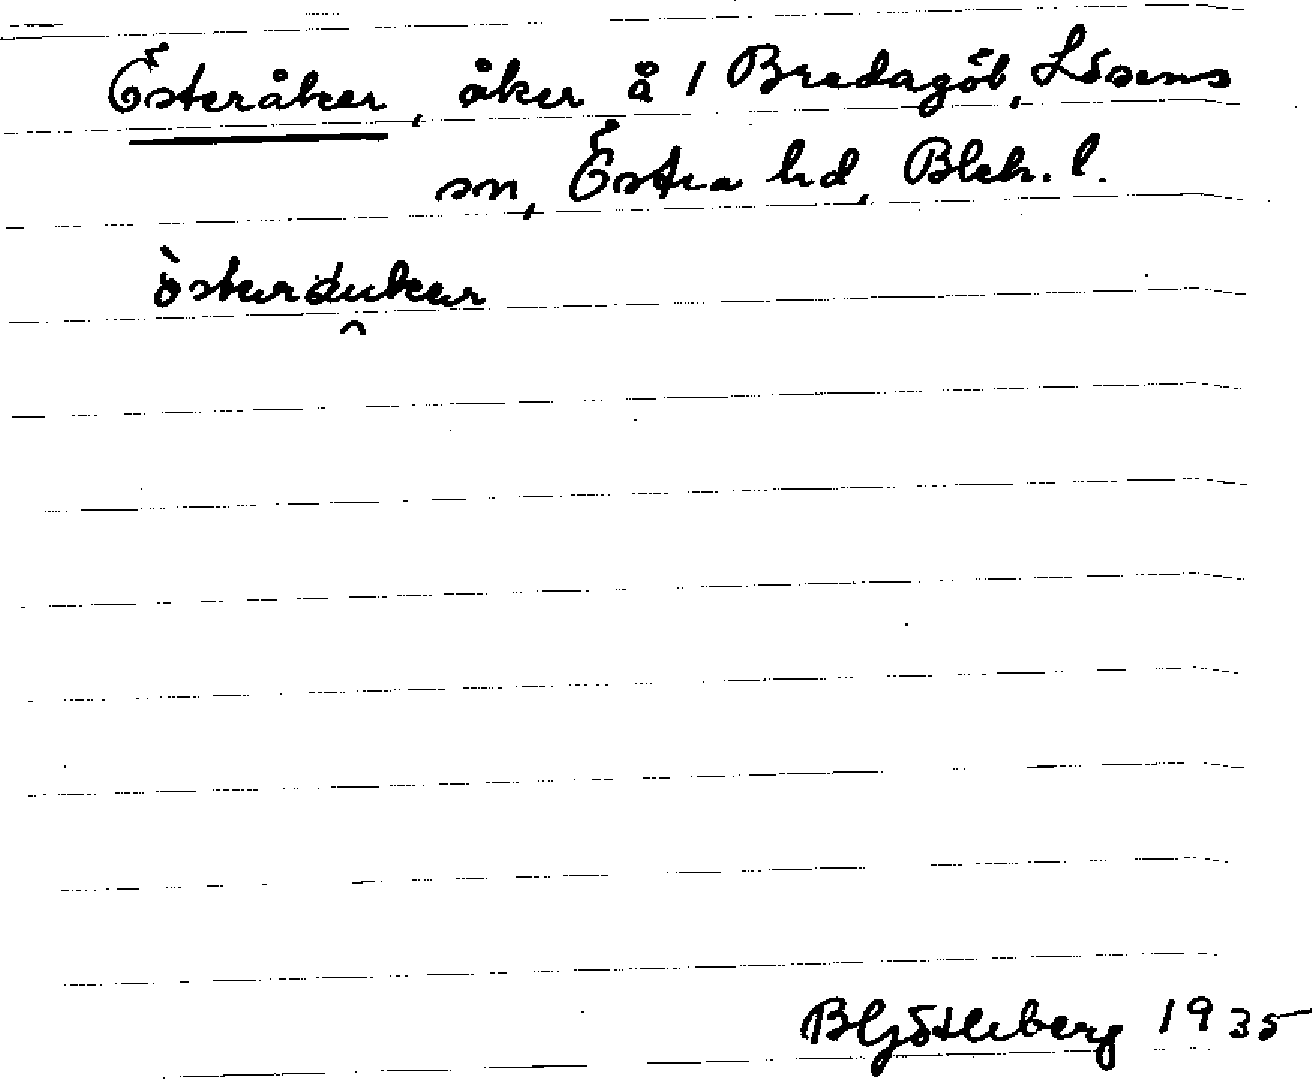 Österåker, åker å 1 Bredagöl, Lösens
sn, Östra hd, Blek. l.
òsteråuker
BGötleberg 1935